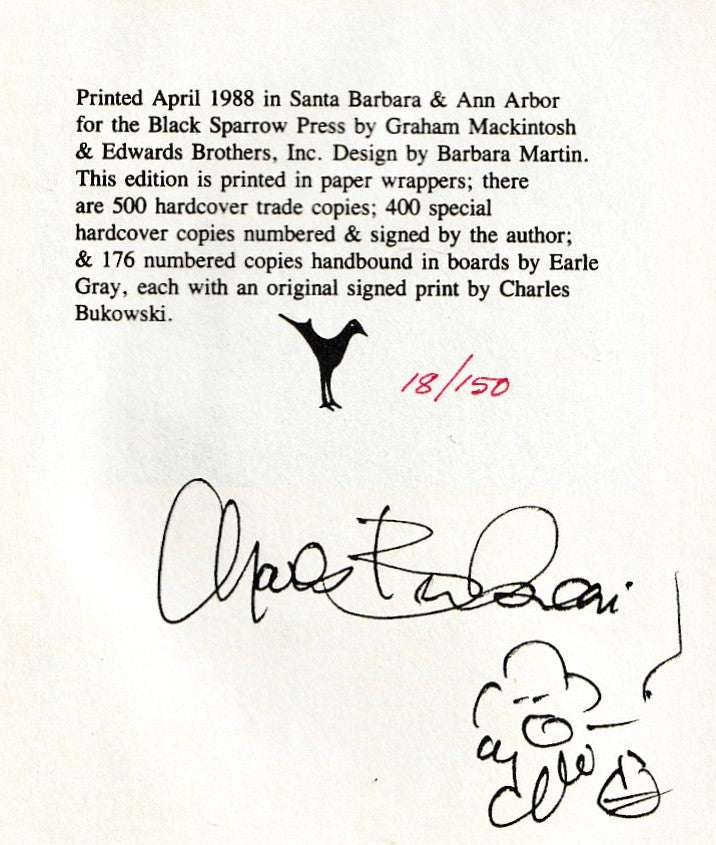 Printed April 1988 in Santa Barbara & Ann Arbor
for the Black Sparrow Press by Graham Mackintosh
& Edwards Brothers, Inc. Design by Barbara Martin.
This edition is printed in paper wrappers; there
are 500 hardcover trade copies; 400 special
hardcover copies numbered & signed by the author;
& 176 numbered copies handbound in boards by Earle
Gray, each with an original signed print by Charles
Bukowski.
18/150
Charles Bukowski